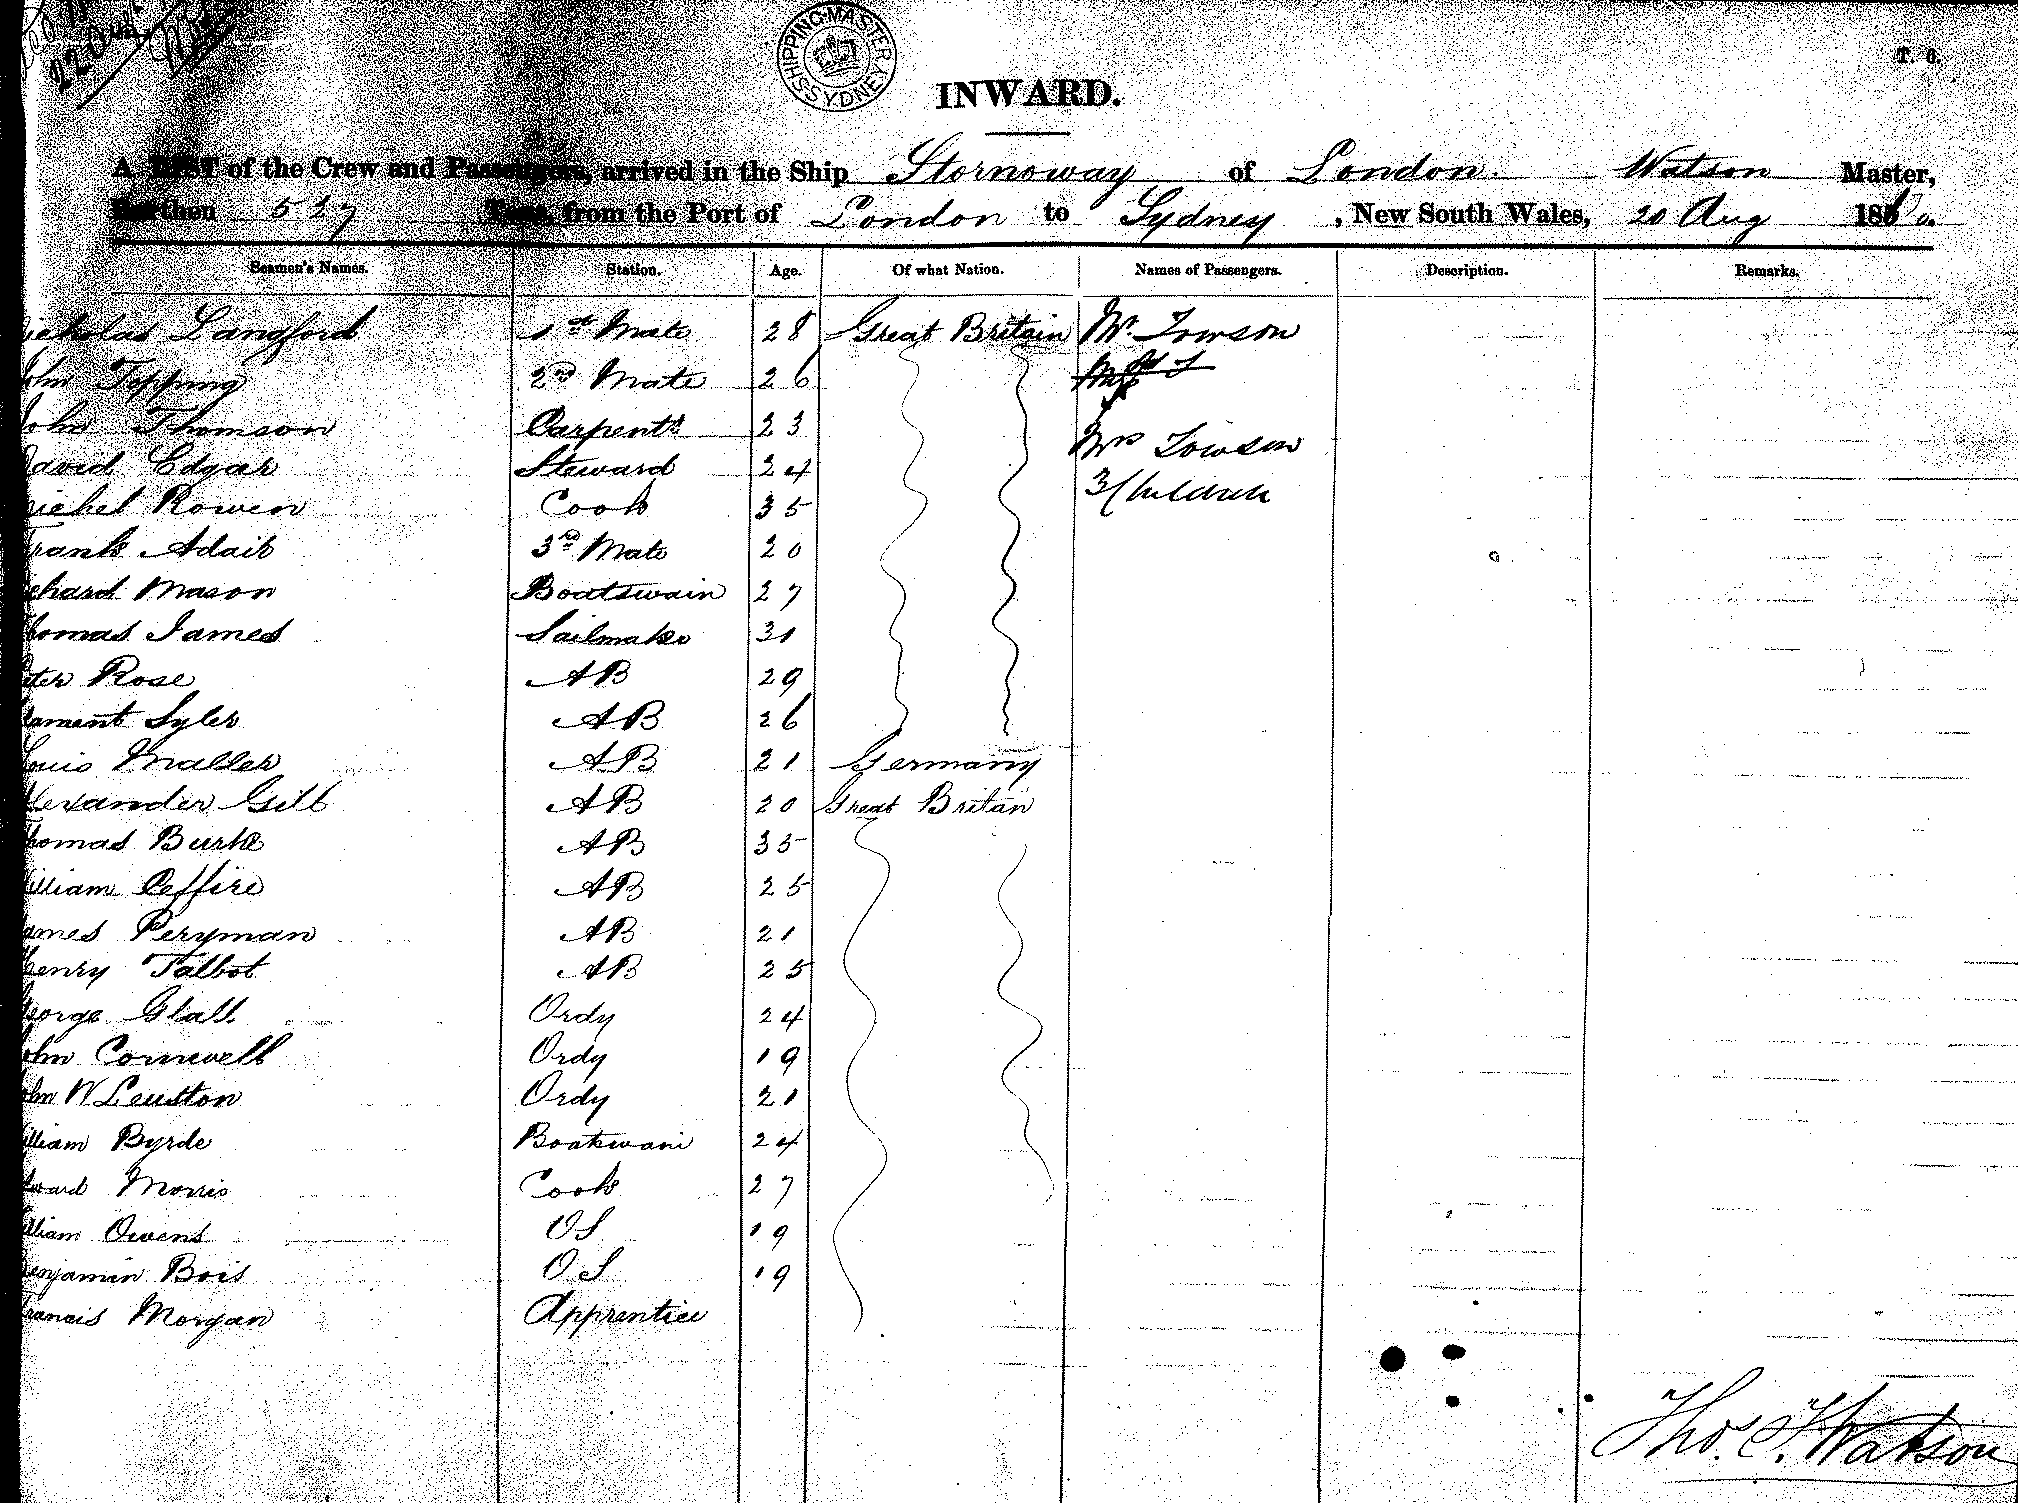 22 Aug
SHIPPING MASTER SYDNEY
T. 6.
INWARD.
A LIST of the Crew and Passengers, arrived in the Ship Stornoway of London Watson Master,
Burthen 527 Tons, from the Port of London to Sydney, New South Wales, 20 Aug 1860
Seamen's Names. Station. Age. Of what Nation. Names of Passengers. Description. Remarks.
icholas Langford 1st Mate 28 Great Britain Mr. Towson
ohn Topping 2nd Mate 26
John Thomson Carpentr 23 Mrs Towson
David Edgar Steward 24
ichel Rowen Cook 35 3 Children
Frank Adair 3rd Mate 20
ichard Mason Boatswain 27
Thomas James Sailmaker 31
eter Rose AB 29
lament Syler AB 26
Louis Maller AB 21 Germany
Alexander Gill AB 20 Great Britan
Thomas Burke AB 35
illiam Ceffire AB 25
ames Peryman AB 21
Henry Talbot AB 25
George Stall Ordy 24
ohn Cornwell Ordy 19
ohn W Leuston Ordy 21
illiam Byrde Boatswain 24
dward Morris Cook 27
illiam Owens OS 19
enjamin Bois OS 19
rancis Morgan Apprentice
Thos. F. Watson